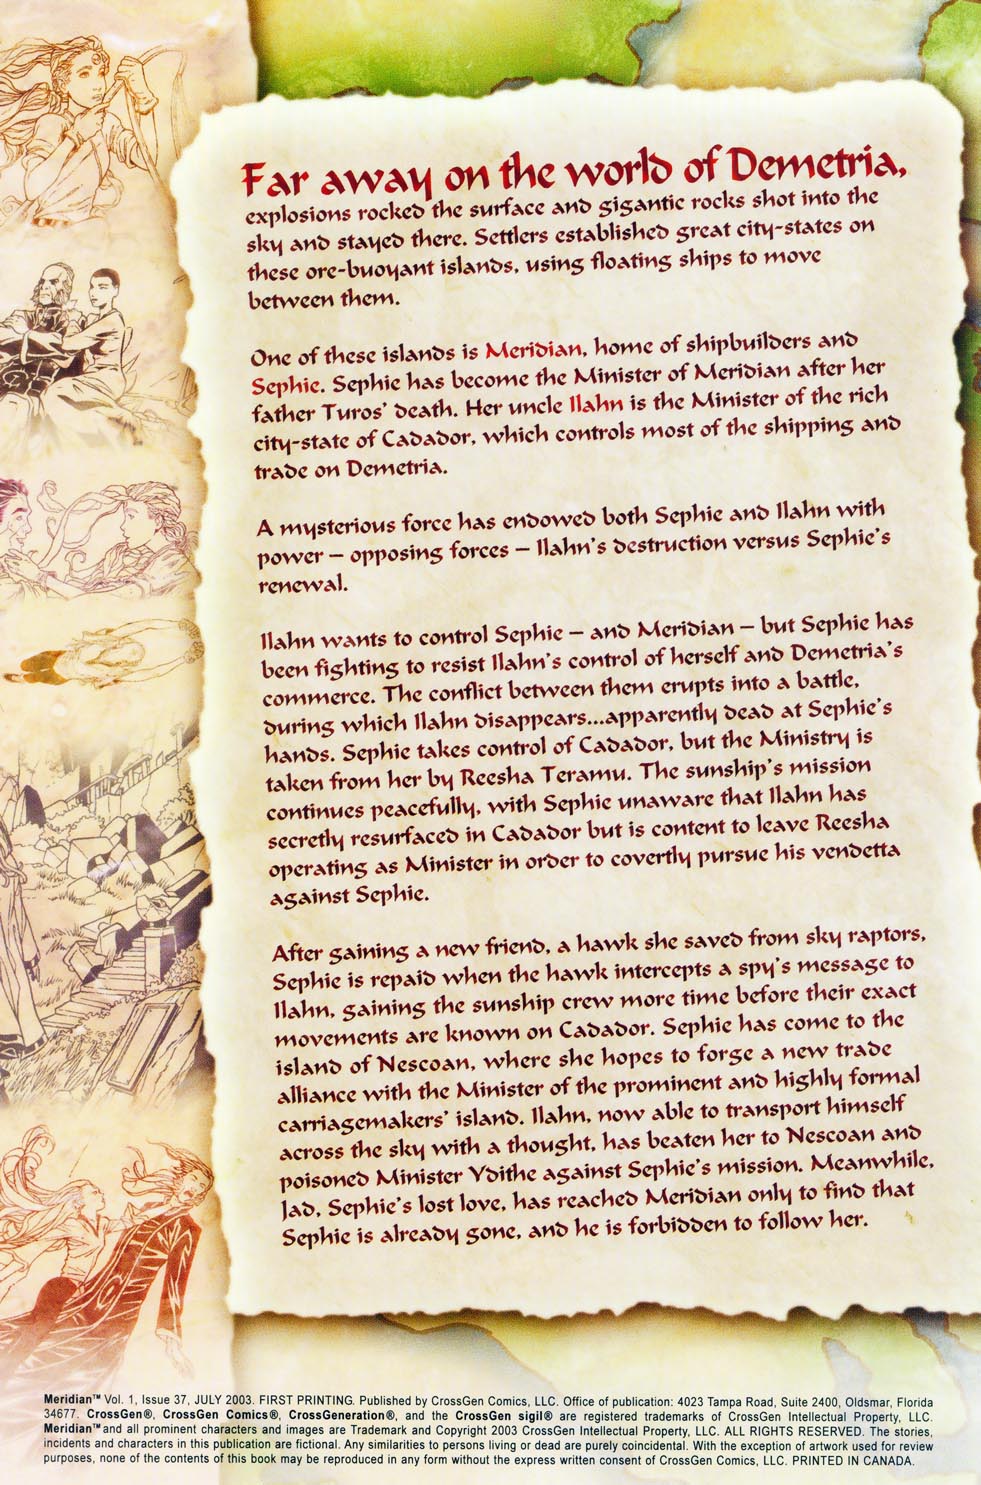 Far away on the world of Demetria,
explosions rocked the surface and gigantic rocks shot into the
sky and stayed there. Settlers established great city-states on
these ore-buoyant islands, using floating ships to move
between them.
One of these islands is Meridian, home of shipbuilders and
Sephie. Sephie has become the Minister of Meridian after her
father Turos' death. Her uncle Ilahn is the Minister of the rich
city-state of Cadador, which controls most of the shipping and
trade on Demetria.
A mysterious force has endowed both Sephie and Ilahn with
power – opposing forces – Ilahn's destruction versus Sephie's
renewal.
Ilahn wants to control Sephie – and Meridian – but Sephie has
been fighting to resist Ilahn's control of herself and Demetria's
commerce. The conflict between them erupts into a battle,
during which Ilahn disappears...apparently dead at Sephie's
hands. Sephie takes control of Cadador, but the Ministry is
taken from her by Reesha Teramu. The sunship's mission
continues peacefully, with Sephie unaware that Ilahn has
secretly resurfaced in Cadador but is content to leave Reesha
operating as Minister in order to covertly pursue his vendetta
against Sephie.
After gaining a new friend, a hawk she saved from sky raptors,
Sephie is repaid when the hawk intercepts a spy's message to
Ilahn, gaining the sunship crew more time before their exact
movements are known on Cadador. Sephie has come to the
island of Nescoan, where she hopes to forge a new trade
alliance with the Minister of the prominent and highly formal
carriagemakers' island. Ilahn, now able to transport himself
across the sky with a thought, has beaten her to Nescoan and
poisoned Minister Ydithe against Sephie's mission. Meanwhile,
Jad, Sephie's lost love, has reached Meridian only to find that
Sephie is already gone, and he is forbidden to follow her.
Meridian™ Vol. 1, Issue 37, JULY 2003. FIRST PRINTING. Published by CrossGen Comics, LLC. Office of publication: 4023 Tampa Road, Suite 2400, Oldsmar, Florida
34677. CrossGen®, CrossGen Comics®, CrossGeneration®, and the CrossGen sigil® are registered trademarks of CrossGen Intellectual Property, LLC.
Meridian™ and all prominent characters and images are Trademark and Copyright 2003 CrossGen Intellectual Property, LLC. ALL RIGHTS RESERVED. The stories,
incidents and characters in this publication are fictional. Any similarities to persons living or dead are purely coincidental. With the exception of artwork used for review
purposes, none of the contents of this book may be reproduced in any form without the express written consent of CrossGen Comics, LLC. PRINTED IN CANADA.